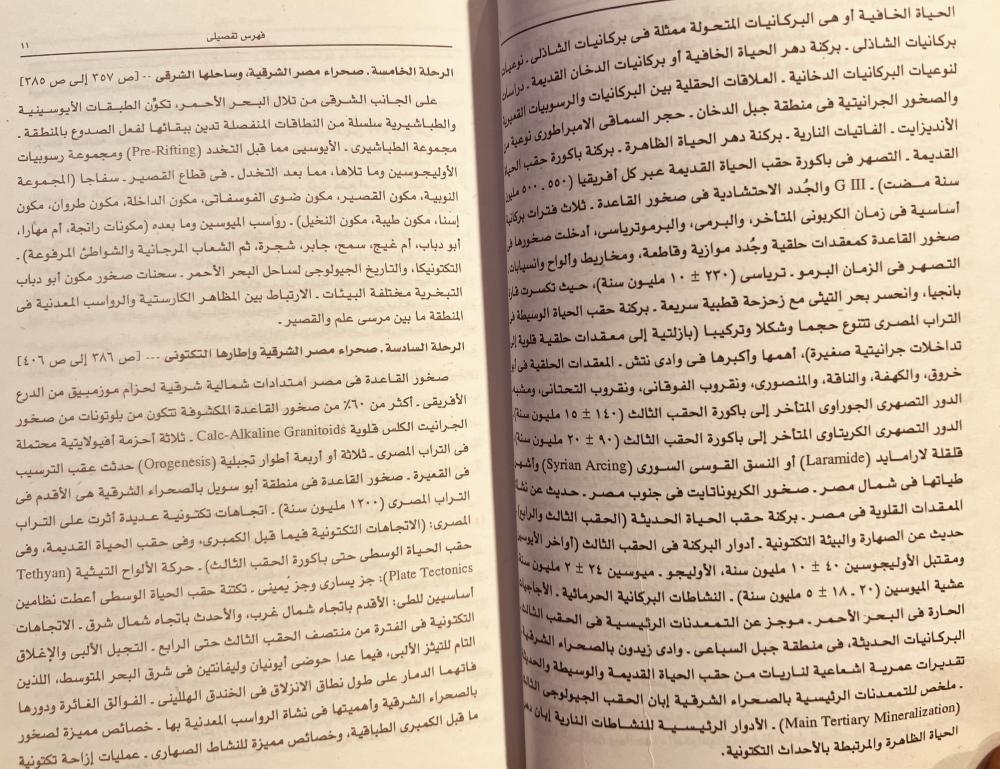 الحياة الخافية أو هى البركانيات المتحولة ممثلة فى بركانيات الشاذلى ـ نوعيات
بركانيات الشاذلى ـ بركنة دهر الحياة الخافية أو بركانيات الدخان القديمة ـ دراسات
لنوعيات البركانيات الدخانية ـ العلاقات الحقلية بين البركانيات والرسوبيات القعيرية
والصخور الجرانيتية فى منطقة جبل الدخان ـ حجر السماقى الامبراطورى نوعية من
الأنديزايت ـ الفاتيات النارية ـ بركنة دهر الحياة الظاهرة ـ بركنة باكورة حقب الحياة
القديمة ـ التصهر فى باكورة حقب الحياة القديمة عبر كل أفريقيا (٥٥٠ ـ ٥٠٠ مليون
سنة مـضت) ـ G III والجُدد الاحتشادية فى صخور القاعدة ـ ثلاث فترات بركانية
أساسية فى زمان الكربونى المتأخر، والبرمى، والبرموترياسى، أدخلت صخورها فى
صخور القاعدة كمعقدات حلقية وجُدد موازية وقاطعة، ومخاريط وألواح وانسيابات.
التصهر فى الزمان البرمو ـ ترياسى (٢٣٠ ± ١٠ مليون سنة)، حيث تكسرت قارة
بانجيا، وانحسر بحر التيثى مع زحزحة قطبية سريعة ـ بركنة حقب الحياة الوسيطة فى
التراب المصرى تتنوع حجما وشكلا وتركيبا (بازلتية إلى معقدات حلقية قلوية إلى
تداخلات جرانيتية صغيرة)، أهمها وأكبرها فى وادى نتش ـ المعقدات الحلقية فى أبو
خروق، والكهفة، والناقة، والمنصورى، ونقروب الفوقانى، ونقروب التحتانى، ومشبه
الدور التصهرى الجوراوى المتأخر إلى باكورة الحقب الثالث (١٤٠ ± ١٥ مليون سنة)
الدور التصهرى الكريتاوى المتأخر إلى باكورة الحقب الثالث (٩٠ ± ٢٠ مليون سنة)
قلقلة لارامايد (Laramide) أو النسق القوسى السورى (Syrian Arcing) وأشهر
طياتها فى شمال مصر ـ صخور الكربوناتايت فى جنوب مصر ـ حديث عن نشأة
المعقدات القلوية فى مصر ـ بركنة حقب الحياة الحديثة (الحقب الثالث والرابع)
حديث عن الصهارة والبيئة التكتونية ـ أدوار البركنة فى الحقب الثالث (أواخر الأيوسين
ومقتبل الأوليجوسين ٤٠ ± ١٠ مليون سنة، الأوليجو ـ ميوسين ٢٤ ± ٢ مليون سنة
عشية الميوسين (٢٠ ـ ١٨ ± ٥ مليون سنة) ـ النشاطات البركانية الحرمائية ـ الأجاجيات
الحارة فى البحر الأحمر ـ موجز عن التمعدنات الرئيسية فى الحقب الثالث
البركانيات الحديثة، فى منطقة جبل السباعى ـ وادى زيدون بالصحراء الشرقية
تقديرات عمرية اشعاعية لناريات من حقب الحياة القديمة والوسيطة والحديثة
ـ ملخص للتمعدنات الرئيسية بالصحراء الشرقية إبان الحقب الجيولوجى الثالث
(Main Tertiary Mineralization) ـ الأدوار الرئيسية للنشاطات النارية إبان دهر
الحياة الظاهرة والمرتبطة بالأحداث التكتونية.
فهرس تفصيلى
١١
الرحلة الخامسة ـ صحراء مصر الشرقية، وساحلها الشرقى ... [ص ٣٥٧ إلى ص ٣٨٥]
على الجانب الشرقى من تلال البحر الأحمر، تكوِّن الطبقات الأيوسينية
والطباشيرية سلسلة من النطاقات المنفصلة تدين ببقائها لفعل الصدوع بالمنطقة ـ
مجموعة الطباشيرى ـ الأيوسيى مما قبل التخدد (Pre-Rifting) ومجموعة رسوبيات
الأوليجوسين وما تلاها، مما بعد التخدل ـ فى قطاع القصير ـ سفاجا (المجموعة
النوبية، مكون القصير، مكون ضوى الفوسفاتى، مكون الداخلة، مكون طروان، مكون
إسنا، مكون طيبة، مكون النخيل) ـ رواسب الميوسين وما بعده (مكونات رانجة، أم مهارا،
أبو دباب، أم غيج، سمح، جابر، شجرة، ثم الشعاب المرجانية والشواطئ المرفوعة) ـ
التكتونيكا، والتاريخ الجيولوجى لساحل البحر الأحمر ـ سحنات صخور مكون أبو دباب
التبخرية مختلفة البيئات ـ الارتباط بين المظاهر الكارستية والرواسب المعدنية فى
المنطقة ما بين مرسى علم والقصير ـ
الرحلة السادسة ـ صحراء مصر الشرقية وإطارها التكتونى ... [ص ٣٨٦ إلى ص ٤٠٦]
صخور القاعدة فى مصر امتدادات شمالية شرقية لحزام موزمبيق من الدرع
الأفريقى ـ أكثر من ٦٠٪ من صخور القاعدة المكشوفة تتكون من بلوتونات من صخور
الجرانيت الكلس قلوية Calc-Alkaline Granitoids ـ ثلاثة أحزمة أفيولايتية محتملة
فى التراب المصرى ـ ثلاثة أو أربعة أطوار تجبلية (Orogenesis) حدثت عقب الترسيب
فى القعيرة ـ صخور القاعدة فى منطقة أبو سويل بالصحراء الشرقية هى الأقدم فى
التراب المصرى (١٢٠٠ مليون سنة) ـ اتجاهات تكتونية عديدة أثرت على التراب
المصرى: (الاتجاهات التكتونية فيما قبل الكمبرى، وفى حقب الحياة القديمة، وفى
حقب الحياة الوسطى حتى باكورة الحقب الثالث) ـ حركة الألواح التيثية (Tethyan
Plate Tectonics): جز يسارى وجز يُمينى ـ تكتنة حقب الحياة الوسطى أعطت نظامين
أساسيين للطى: الأقدم باتجاه شمال غرب، والأحدث باتجاه شمال شرق ـ الاتجاهات
التكتونية فى الفترة من منتصف الحقب الثالث حتى الرابع ـ التجبل الألبى والإغلاق
التام للتيثز الألبى، فيما عدا حوضى أيونيان وليفانتين فى شرق البحر المتوسط، اللذين
فاتهما الدمار على طول نطاق الانزلاق فى الخندق الهللينى ـ الفوالق الغائرة ودورها
بالصحراء الشرقية وأهميتها فى نشاة الرواسب المعدنية بها ـ خصائص مميزة لصخور
ما قبل الكمبرى الطباقية، وخصائص مميزة للنشاط الصهارى ـ عمليات إزاحة تكتونية